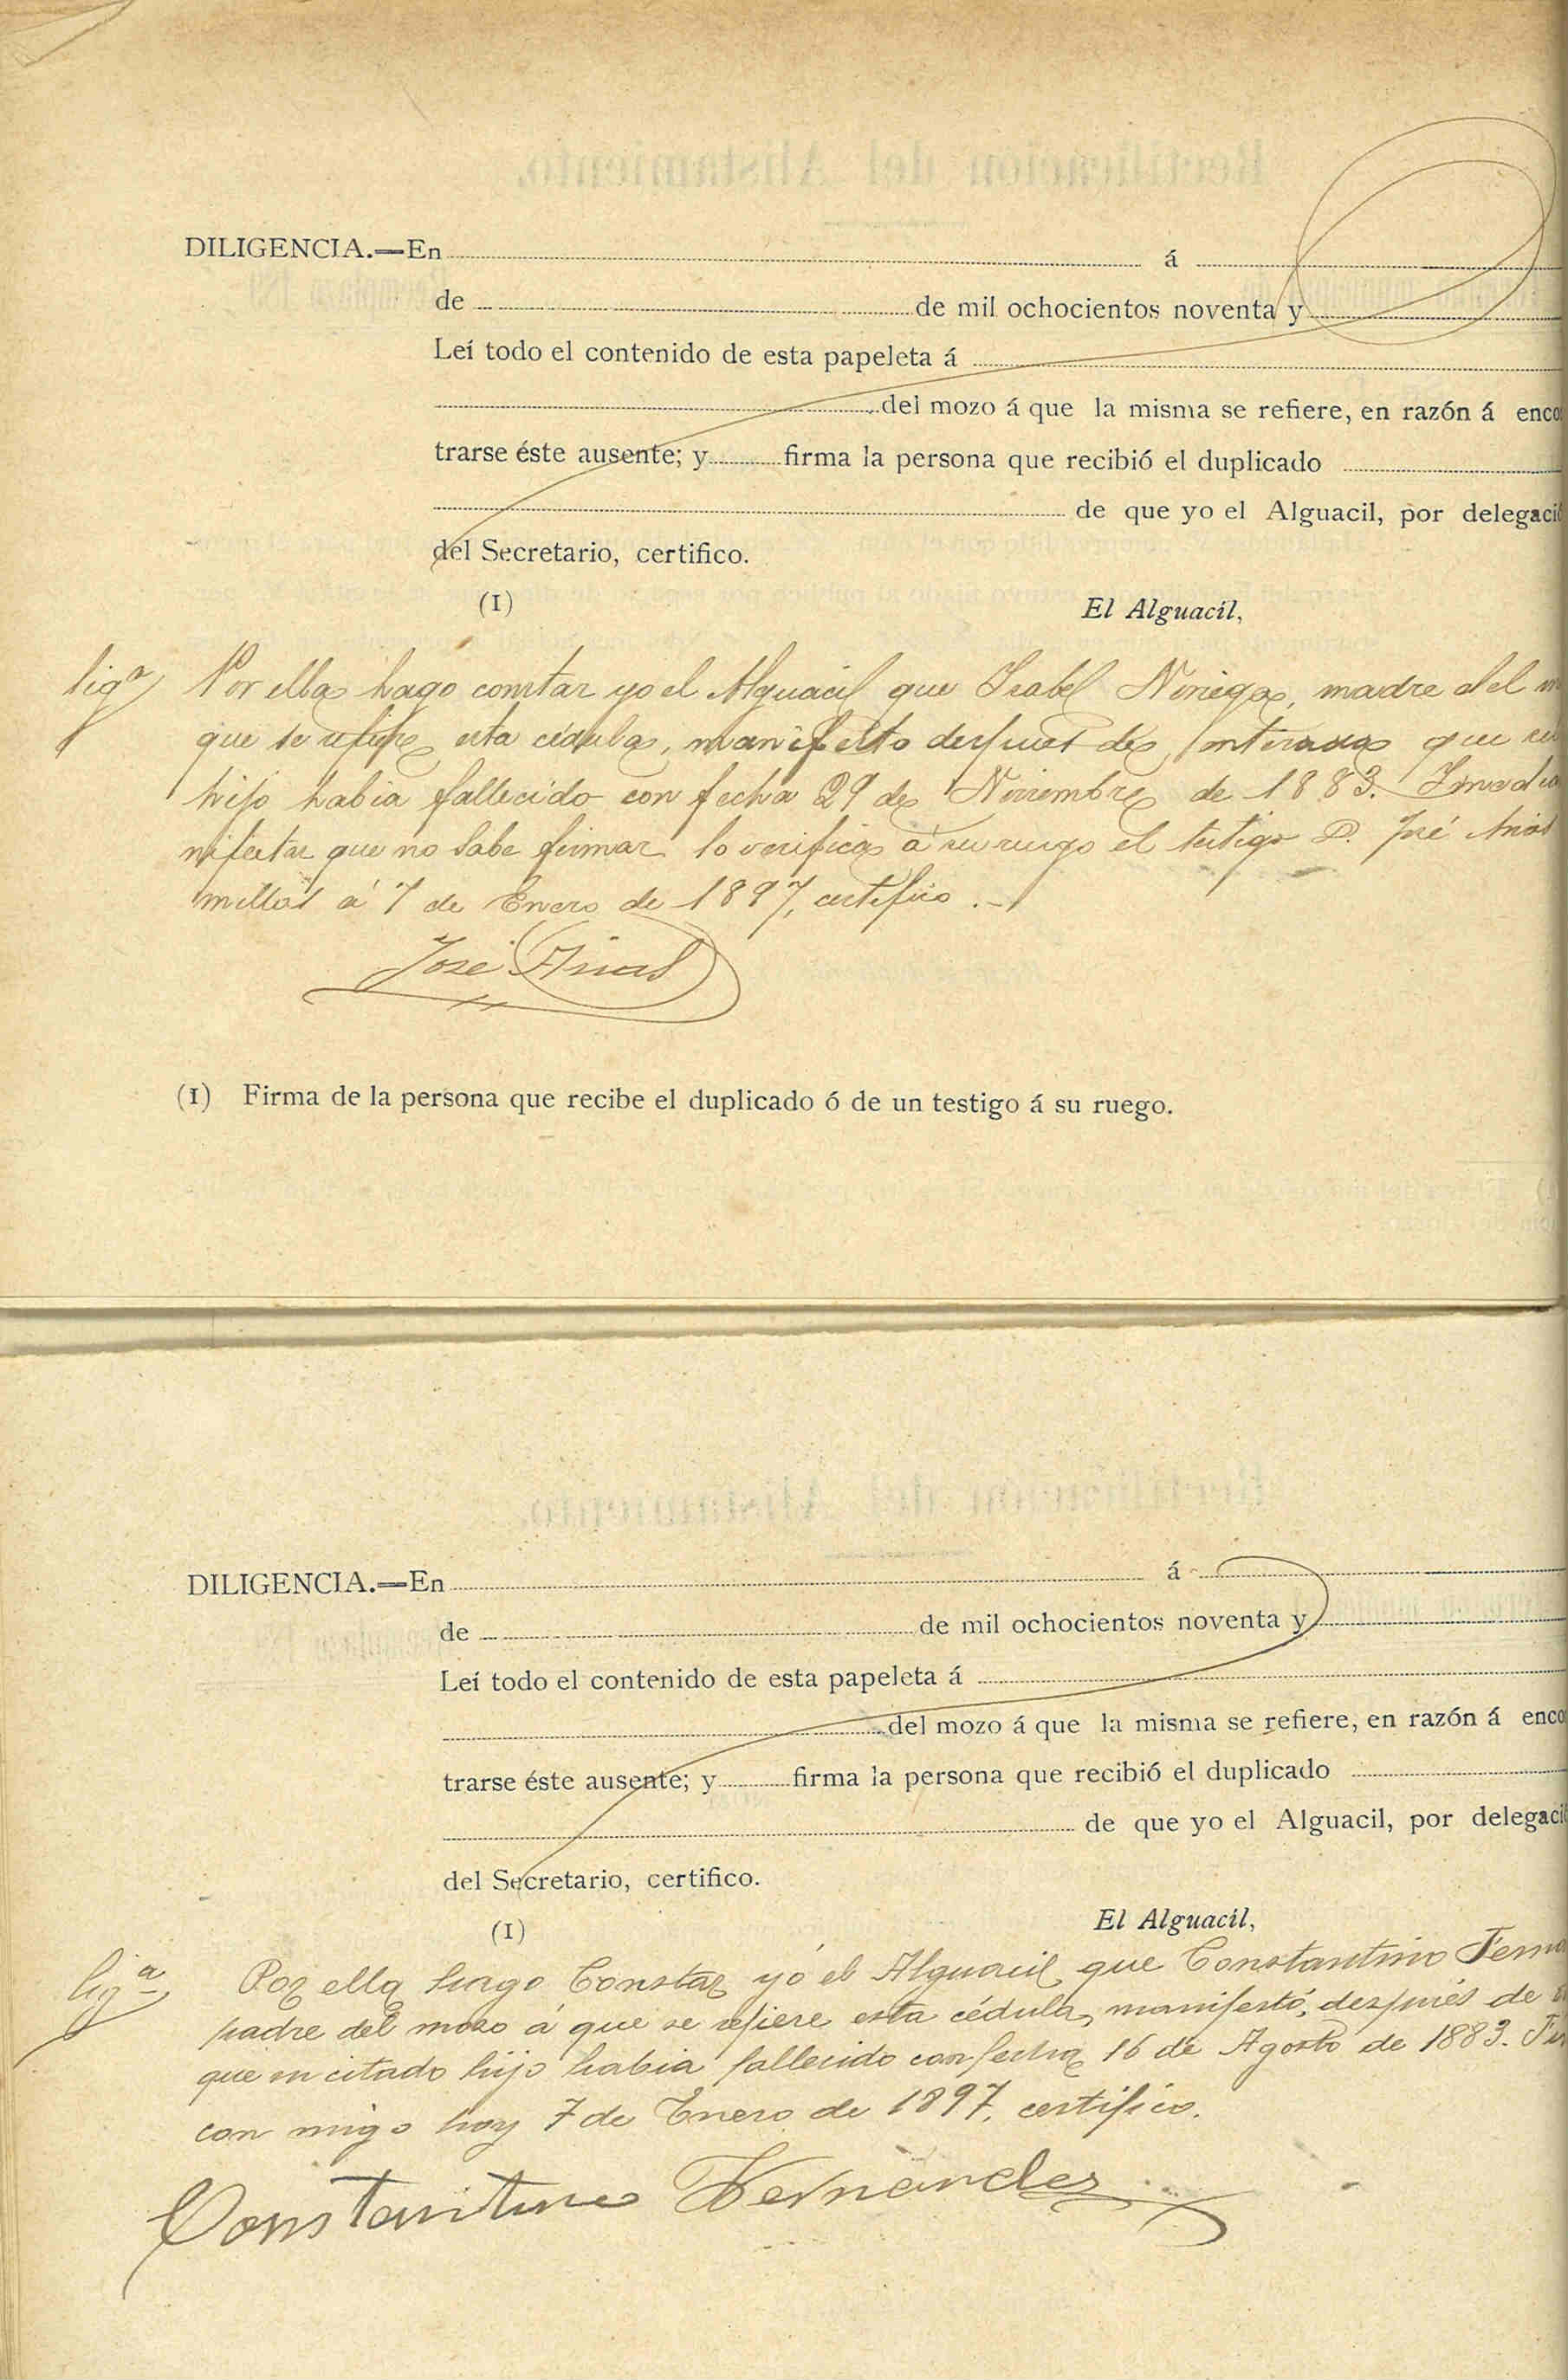 DILIGENCIA.—En á
de de mil ochocientos noventa y
Leí todo el contenido de esta papeleta á
del mozo á que la misma se refiere, en razón á enco
trarse éste ausente; y firma la persona que recibió el duplicado
de que yo el Alguacil, por delegació
del Secretario, certifico.
(1) El Alguacil,
ligª Por ella hago constar yo el Alguacil que Isabel Noriega, madre del m
que se refiere esta cédula, manifesto despues de enterada que su
hijo habia fallecido con fecha 29 de Noviembre de 1883.
nifestar que no sabe firmar lo verifica a su ruego el testigo D. José Arias
millas á 7 de Enero de 1897, certifico.-
José Arias
(1) Firma de la persona que recibe el duplicado ó de un testigo á su ruego.
DILIGENCIA.—En á
de de mil ochocientos noventa y
Leí todo el contenido de esta papeleta á
del mozo á que la misma se refiere, en razón á enco
trarse éste ausente; y firma la persona que recibió el duplicado
de que yo el Alguacil, por delegació
del Secretario, certifico.
(1) El Alguacil,
ligª Por ella hago Constar yó el Alguacil que Constantino Ferna
padre del mozo á que se refiere esta cédula, manifestó, después de
que su citado hijo habia fallecido con fecha 16 de Agosto de 1883.
con migo hoy 7 de Enero de 1897, certifico.
Constantino Fernandez